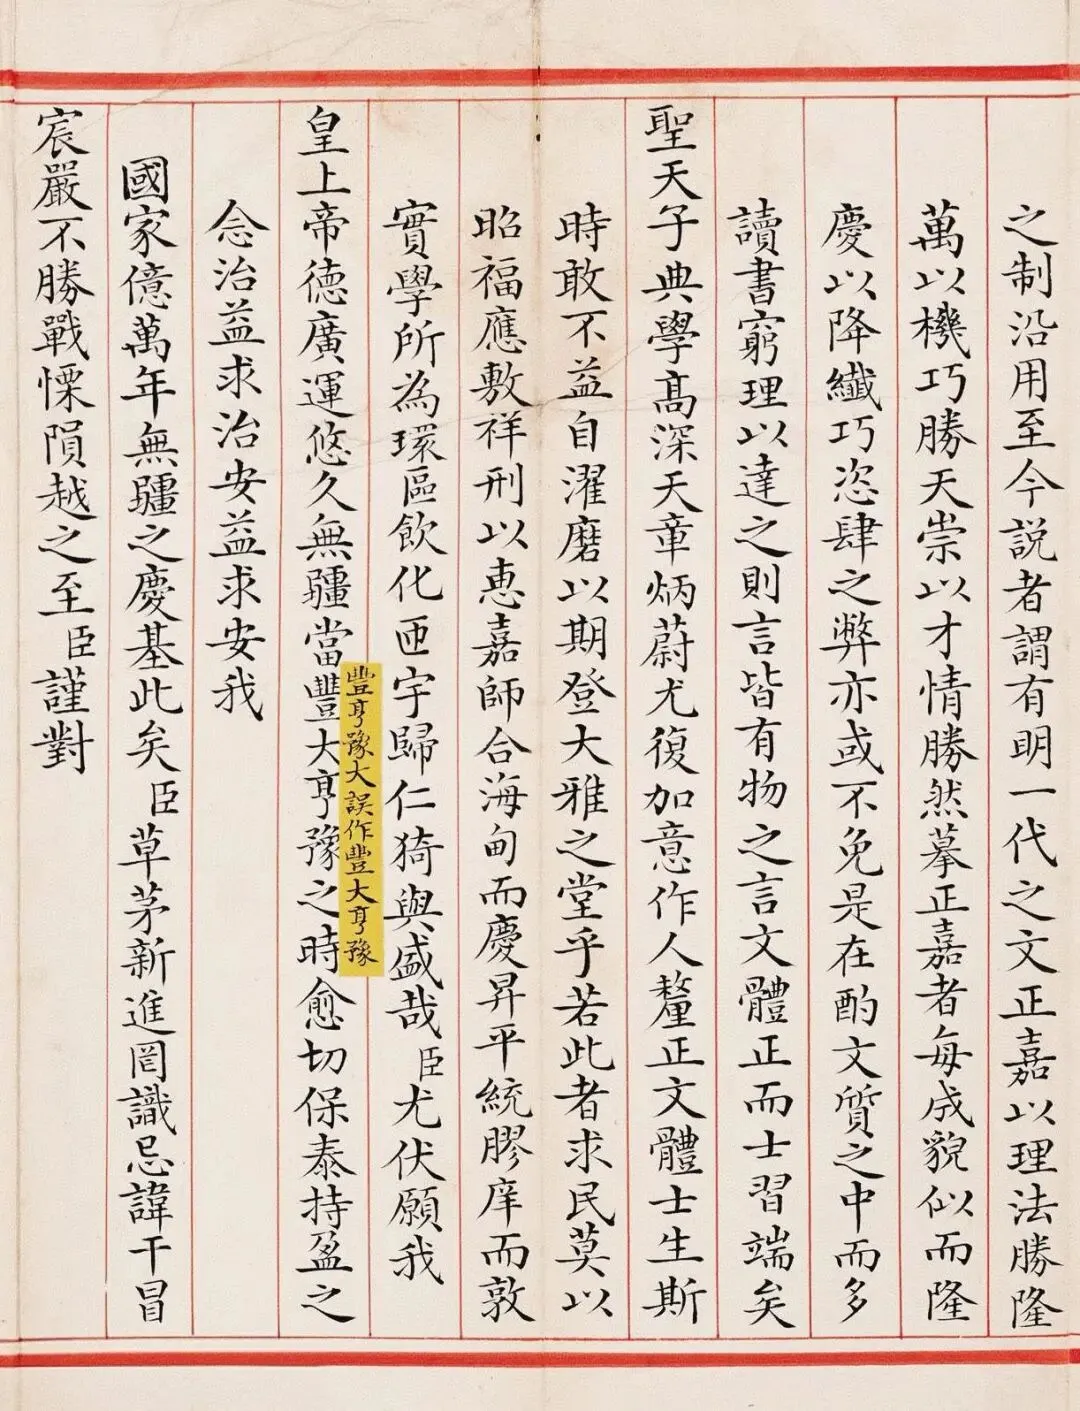 之制沿用至今説者謂有明一代之文正嘉以理法勝隆
萬以機巧勝天崇以才情勝然摹正嘉者每成貌似而隆
慶以降纖巧恣肆之弊亦或不免是在酌文質之中而多
讀書窮理以達之則言皆有物之言文體正而士習端矣
聖天子典學高深天章炳蔚尤復加意作人釐正文體士生斯
時敢不益自濯磨以期登大雅之堂乎若此者求民莫以
昭福應敷祥刑以惠嘉師合海甸而慶昇平統膠庠而敦
實學所為環區飲化匝宇歸仁猗與盛哉臣尤伏願我
豐亨豫大誤作豐大亨豫
皇上帝德廣運悠久無疆當豐大亨豫之時愈切保泰持盈之
念治益求治安益求安我
國家億萬年無疆之慶基此矣臣草茅新進罔識忌諱干冒
宸嚴不勝戰慄隕越之至臣謹對